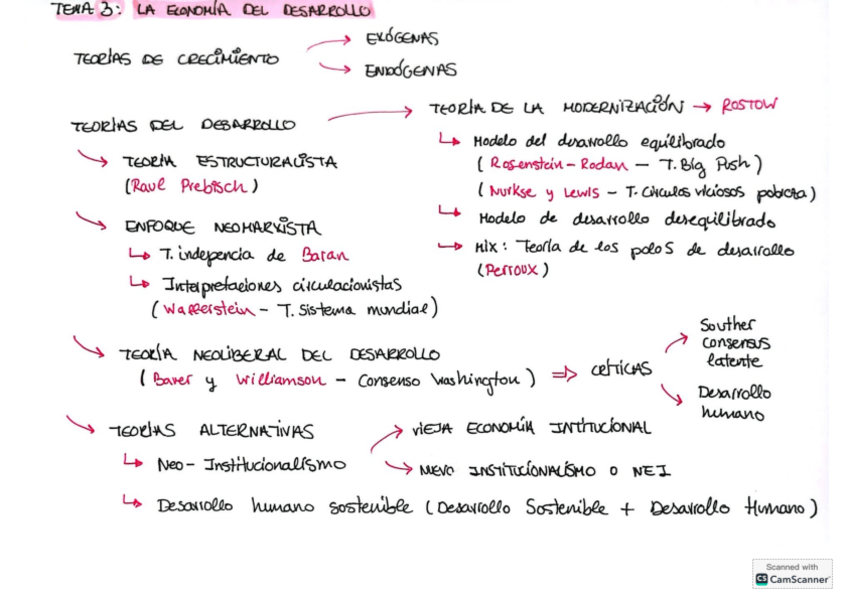 TEMA 3: LA ECONOMÍA DEL DESARROLLO
TEORÍAS DE CRECIMIENTO
EXÓGENAS
ENDÓGENAS
TEORÍAS DEL DESARROLLO
TEORÍA DE LA MODERNIZACIÓN → ROSTOW
Modelo del desarrollo equilibrado
(Rosenstein-Rodan - T. Big Push)
(Nurkse y Lewis - T. Círculos viciosos pobreza)
Modelo de desarrollo desequilibrado
Mix: Teoría de los polos de desarrollo
(Perroux)
TEORÍA ESTRUCTURALISTA
(Raul Prebisch)
ENFOQUE NEOMARXISTA
T. indepencia de Baran
Interpretaciones circulacionistas
(Wallerstein - T. Sistema mundial)
TEORÍA NEOLIBERAL DEL DESARROLLO
(Baver y Williamson - Consenso Washington) ⇒ CRÍTICAS
Souther
consensus
latente
Desarrollo
humano
TEORÍAS ALTERNATIVAS
Neo-Institucionalismo
VIEJA ECONOMÍA INTITUCIONAL
NUEVO INSTITUCIONALISMO O NEI
Desarrollo humano sostenible (Desarrollo Sostenible + Desarrollo Humano)
Scanned with
CS CamScanner